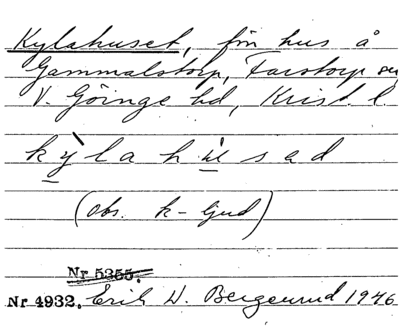 Kylahuset, förr hus å
Gammalstorp, Farstorp sn,
V. Göinge hd, Krist. l.
kỳlahùsad
(obs. k-ljud)
Nr 5355.
Nr 4932. Erik W. Bergeund 1946